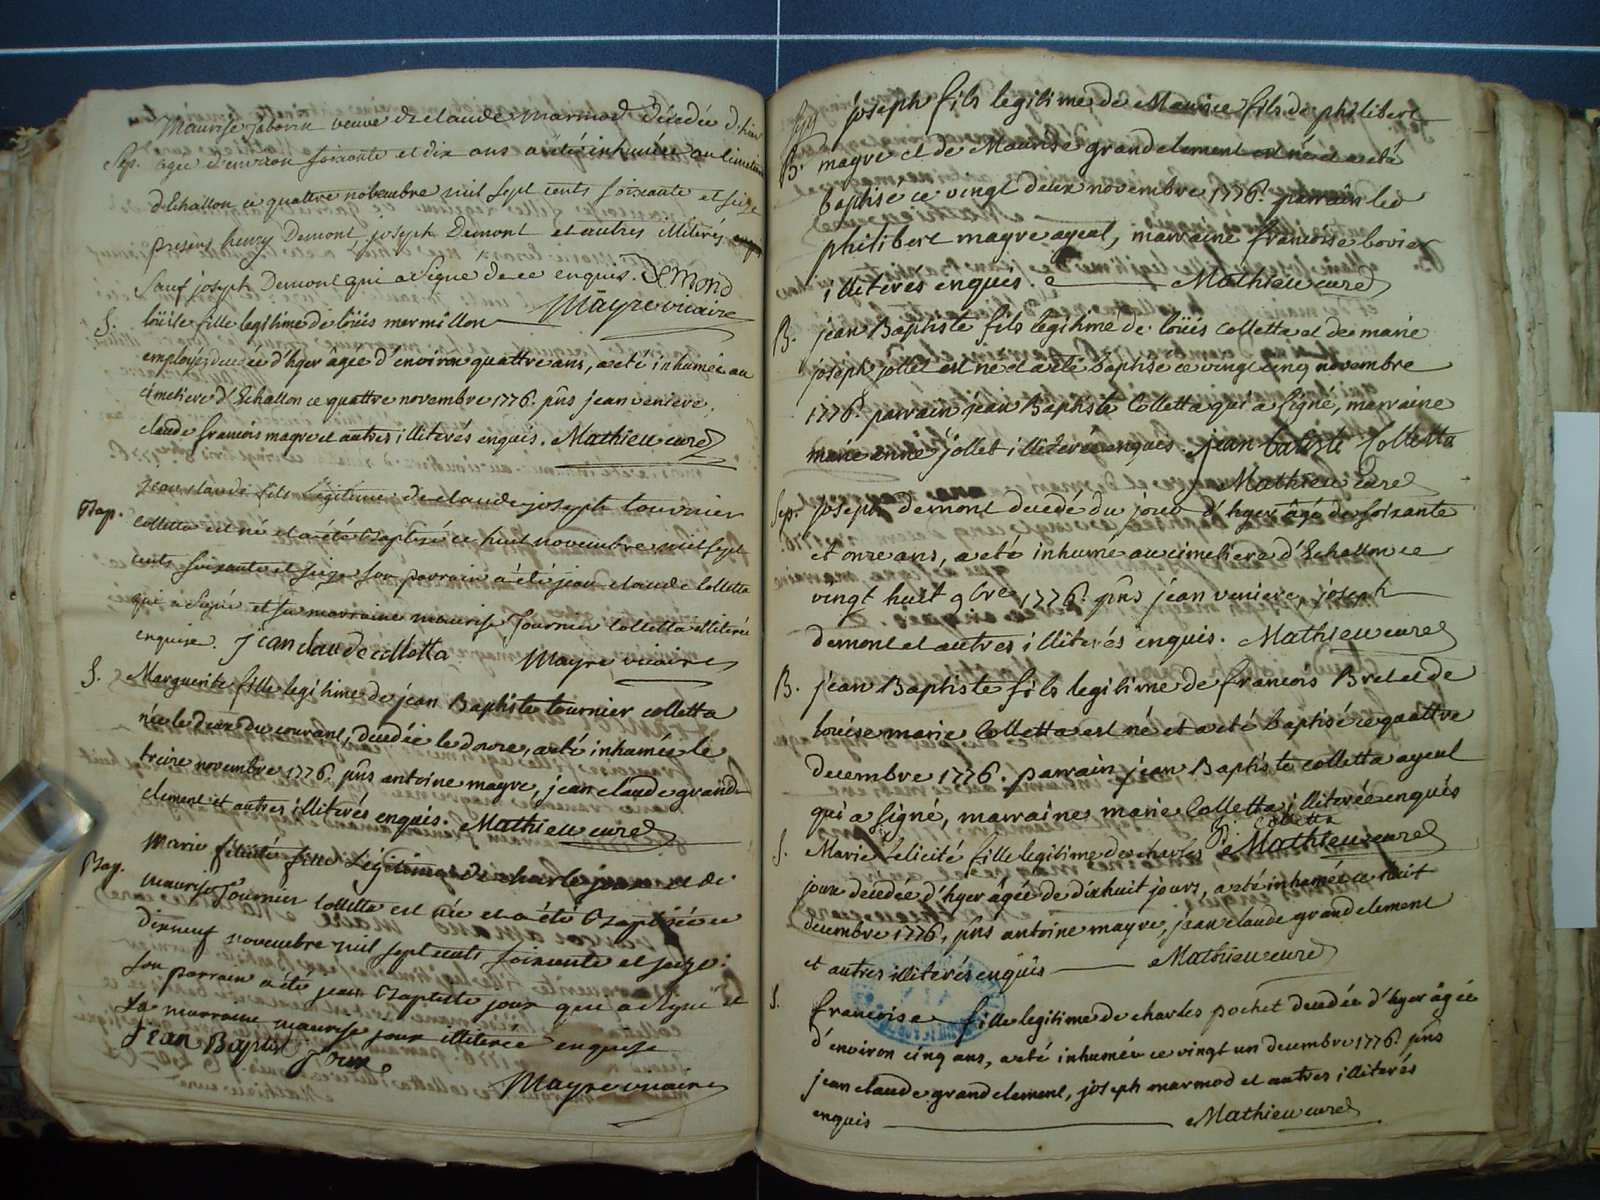 Maurise veuve de claude marmod décédée d'hier
Sep. agée d'environ soixante et dix ans a été inhumée au cimetiere
d'Echallon ce quattre novembre mil sept cents soixante et seize
presens henry Demont, joseph Demont et autres illiterés enquis
sauf joseph Demont qui a signé de ce enquis. Demond
Mayre vicaire
S. loüise fille legitime de loüis mermillon
employé decedée d'hyer âgée d'environ quattre ans, a eté inhumée au
cimetiere d'Echallon ce quattre novembre 1776. pñs jean veniere,
claude francois magre et autres illiterés enquis. Mathieu curé
Bap. jean claude fils Légitime de claude joseph tournier
colletta est né et a été Baptisé ce huit novembre mil sept
cents soixante et seize son parrain a été jean claude colletta
qui a signé et sa marraine maurise Tournier colletta illiterée
enquise. jean claude colletta Mayre vicaire
S. Marguerite fille legitime de jean Baptiste tournier colletta
née le deux du courant, decedée le douze, a eté inhumée le
treize novembre 1776. pñs antoine mayre, jean claude grand
clement et autres illiterés enquis. Mathieu curé
Bap. Marie félicité fille Légitime de charle joux et de
maurise Tournier colletta est née et a été Baptisée ce
dixneuf novembre mil sept cents soixante et seize:
son parrain a été jean Baptiste joux qui a signé et
La marraine maurise joux illiterée enquise
Jean Baptist joux
Mayre vicaire
joseph fils legitime de Maurice fils de philibert
B. magre et de Maurise grandclement est né et a eté
baptisé ce vingt deux novembre 1776. parrain led
philibert magre ayeul, marraine francoise bovier
illiterés enquis. Mathieu curé
B. jean Baptiste fils legitime de loüis colletta et de marie
joseph jollet est né et a eté baptisé ce vingt cinq novembre
1776. parrain jean Baptiste Colletta qui a signé, marraine
marie anne jollet illiterée enquis. jean batiste Colletta
Mathieu curé
Sep. joseph demont decedé du jour d'hyer âgé de soixante
et onze ans, a eté inhumé au cimetiere d'Echallon ce
vingt huit 9bre 1776. pñs jean veniere, joseph
demont et autres illiterés enquis. Mathieu curé
B. jean Baptiste fils legitime de francois Bret et de
louise marie Colletta est né et a eté baptisé ce quattre
decembre 1776. parrain jean Baptiste colletta ayeul
qui a signé, marraine marie Colletta illiterée enquis
colletta
S. Marie félicité fille legitime de charles Mathieu curé
joux decedée d'hyer âgée de dixhuit jours, a eté inhumée ce huit
decembre 1776, pñs antoine mayre, jean claude grandclement
et autres illiterés enquis Mathieu curé
S. francoise fille legitime de charles pochet decedée d'hyer âgée
d'environ cinq ans, a eté inhumée ce vingt un decembre 1776. pñs
jean claude grandclement, joseph marmod et autres illiterés
enquis Mathieu curé